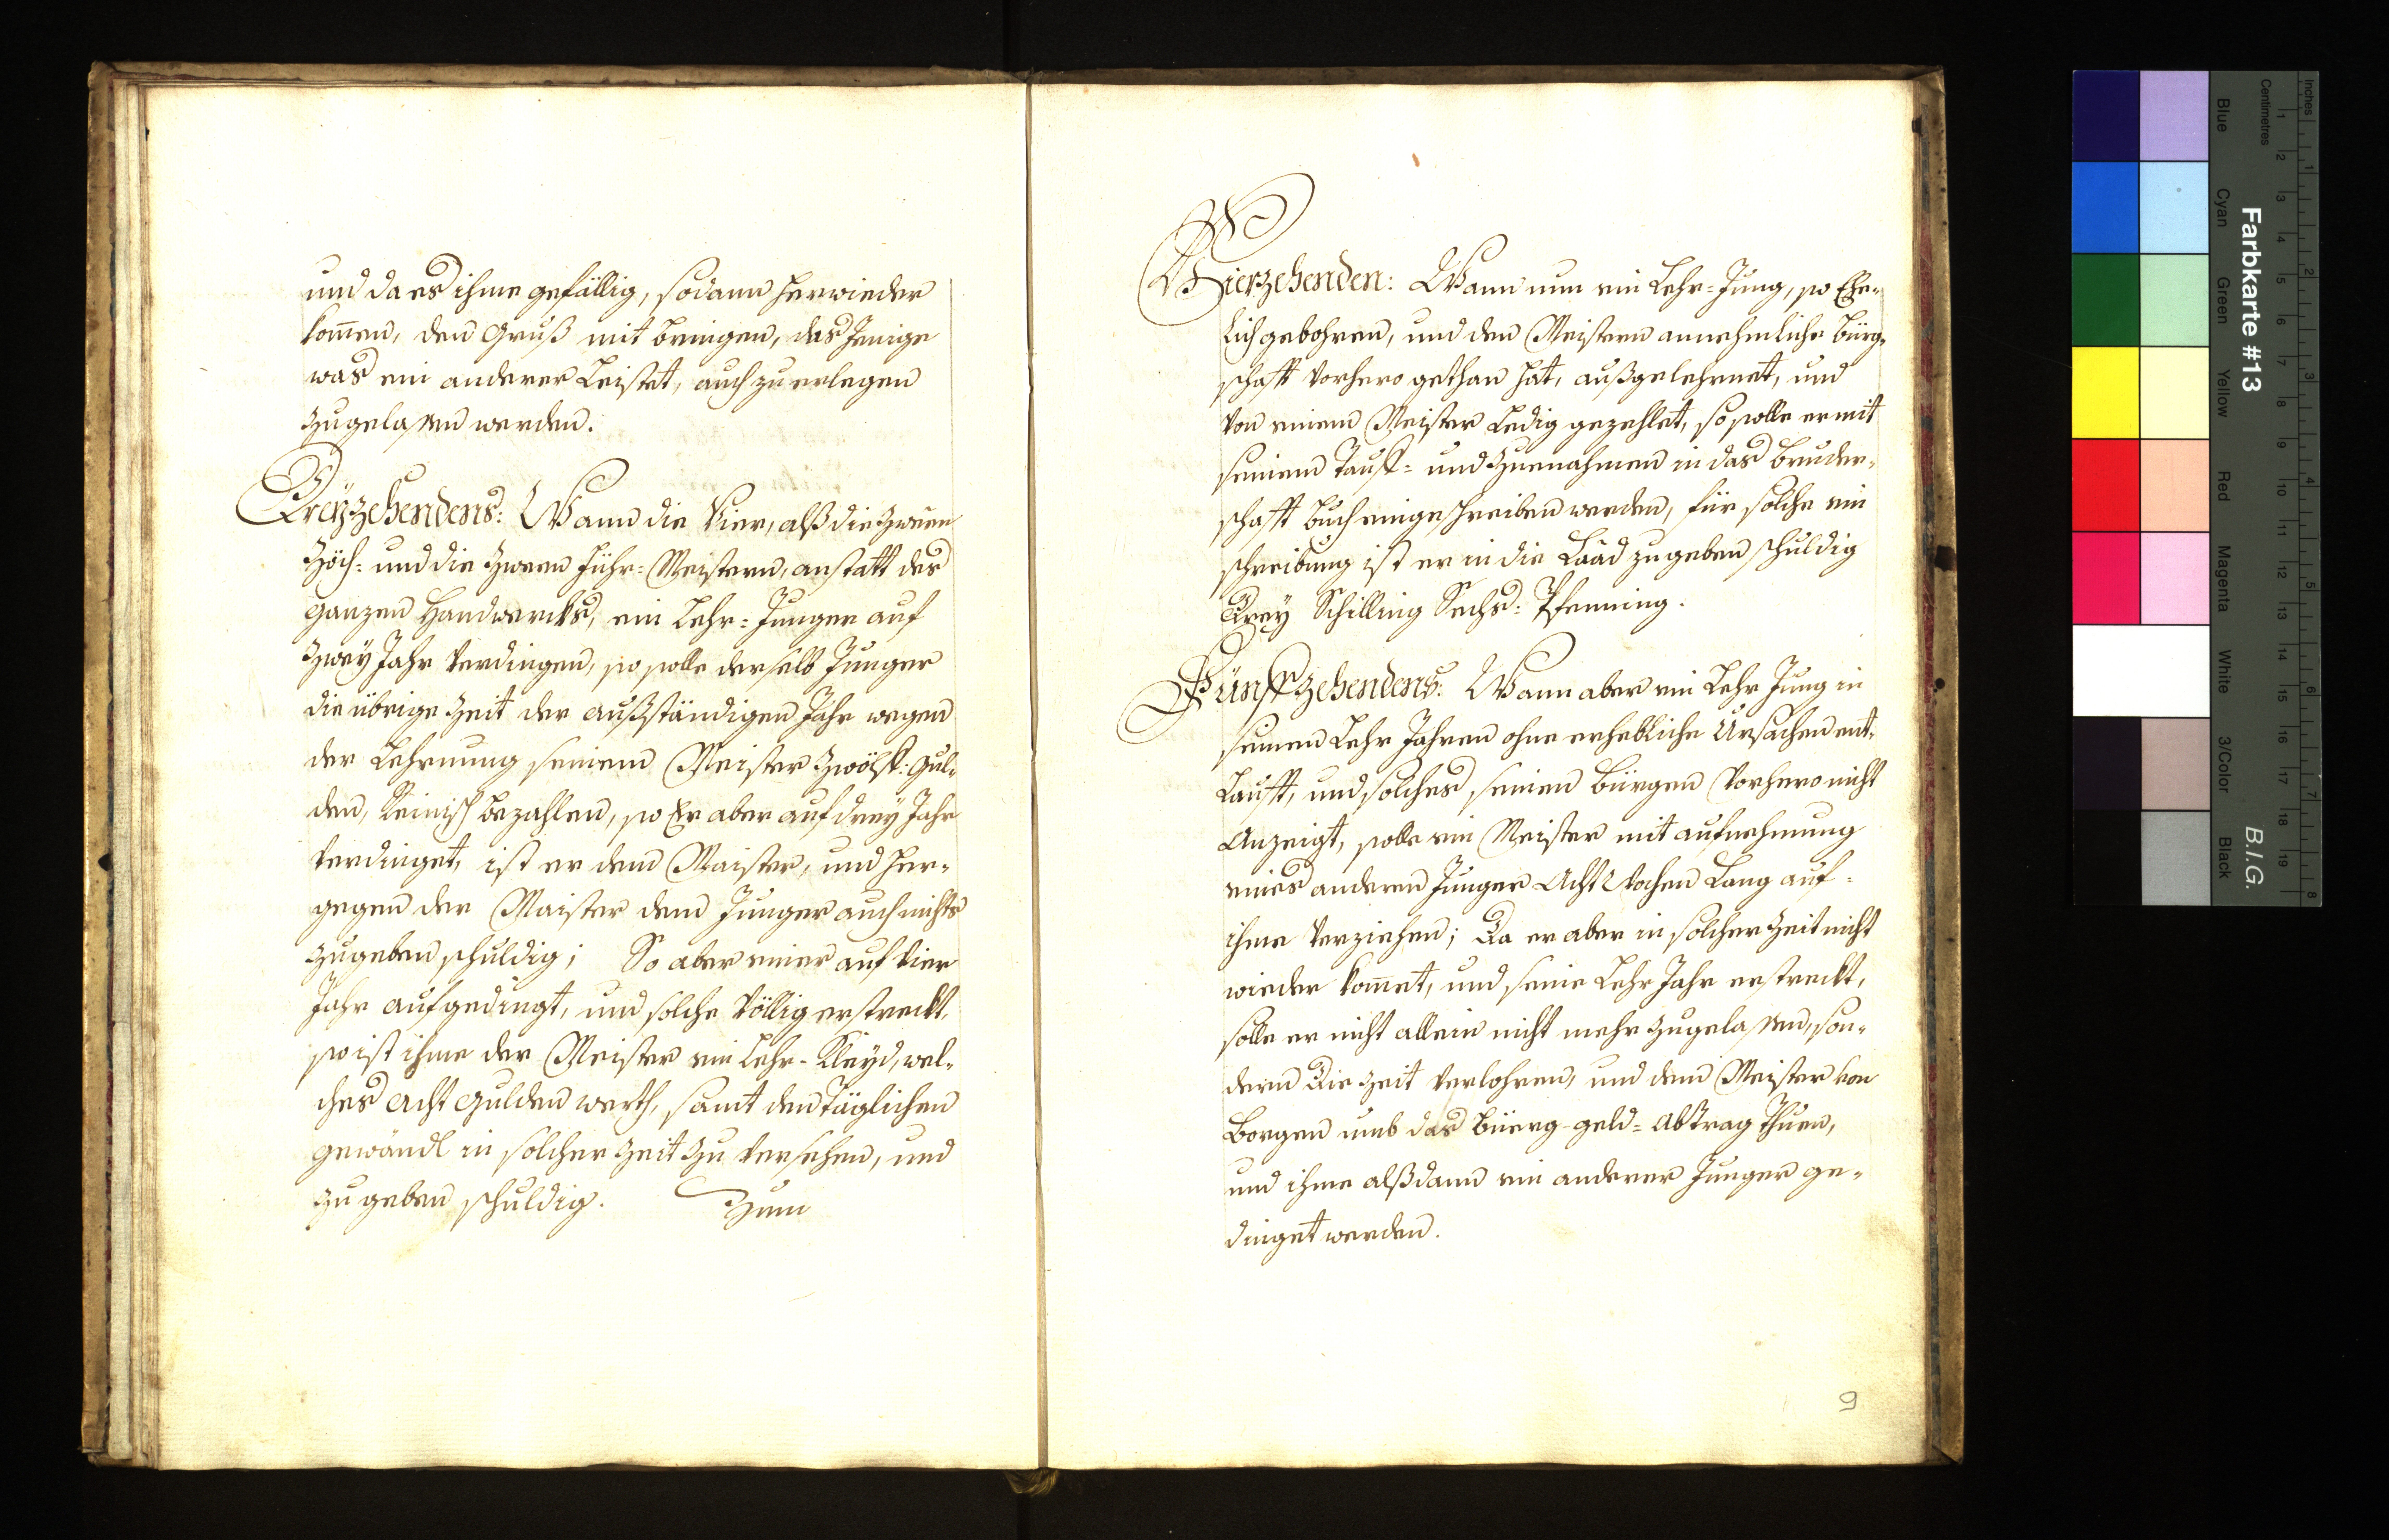 und da es ihme gefällig, sodann herwieder
kom̅en, den Gruß mit bringen, das Jenige
was ein anderer Leistet, auch zu erlegen
zugelassen werden.
Dreÿzehendens: Wann die Vier, alß die zween
Zöch= und die zween Führ=Meistern, anstatt des
ganzen Handwercks, ein Lehr=Junger auf
zweÿ Jahr Verdingen, so solle derselb Junger
die übrige Zeit der außständigen Jahr wegen
der Lehrnung seinem Meister zwölff: Gul=
den, Reinisch bezahlen, so Er aber auf dreÿ Jahr
Verdinget, ist er dem Maister, und her=
gegen der Maister dem Junger auch nichts
zugeben schuldig; So aber einer auf Vier
Jahr aufgedingt, und solche Völlig erstreckt,
so ist ihme der Meister ein Lehr=Kleÿd, wel=
ches Acht Gulden werth, samt den Täglichen
gewändl in solcher Zeit zu Versehen, und
zu geben schuldig. Zum
Vierzehenden: Wann nun ein Lehr=Jung, so Ehe=
lich gebohren, und den Meistern annehmliche Bürg=
schafft Vorhero gethan hat, außgelehrnet, und
Von einem Meister Ledig gezehlet, so solle er mit
seinem Tauff= und Zuenahmen in das Bruder=
schafft Buch eingeschreiben werden, für solche ein
schreibung ist er in die Laad zugeben schuldig
Dreÿ Schilling Sechs: Pfenning.
Fünffzehendens: Wann aber ein Lehr Jung in
seinen Lehr Jahren ohne erhebliche Ursachen ent=
Laufft, und solches seinen Bürgen Vorhero nicht
Anzeigt, solle ein Meister mit aufnehmung
eines anderen Junger Acht Wochen Lang auf=
ihme Verziehen; Da er aber in solcher Zeit nicht
wieder kom̅et, und seine Lehr Jahr erstreckt,
solle er nicht allein nicht mehr zugelassen, son=
dern Die Zeit Verlohren, und dem Meister von
Borgen umb das Büerg-geld=Abtrag thuen,
und ihme alßdann ein anderer Junger ge=
dinget werden.
9
Inches
Centimetres
Farbkarte #13
B.I.G.
Blue
Cyan
Green
Yellow
Red
Magenta
White
3/Color
Black
1
2
3
4
5
6
7
8
9
10
11
12
13
14
15
16
17
18
19
1
2
3
4
5
6
7
8